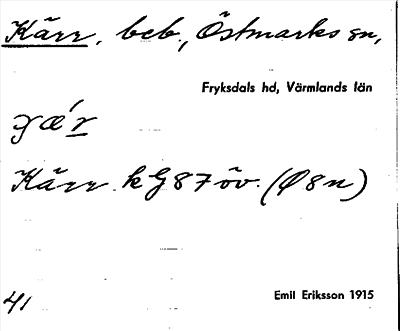 Kärr, beb., Östmarks sn,
Fryksdals hd, Värmlands län
Kärr kG87öv. (Ø8n)
41
Emil Eriksson 1915